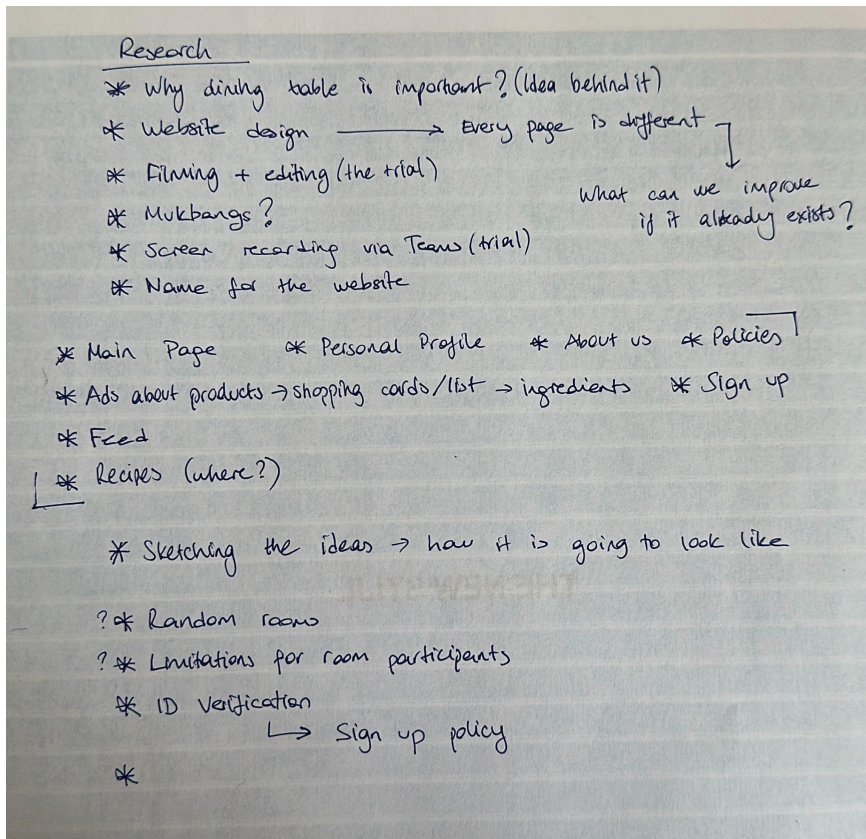 Research
* Why dining table is important? (Idea behind it)
* Website design → Every page is different
* Filming + editing (the trial)
What can we improve
if it already exists?
* Mukbangs?
* Screen recording via Teams (trial)
* Name for the website
* Main Page * Personal Profile * About us * Policies
* Ads about products → shopping cards/list → ingredients * Sign up
* Feed
* Recipes (where?)
* Sketching the ideas → how it is going to look like
? * Random rooms
? * Limitations for room participants
* ID verification
↳ Sign up policy
*